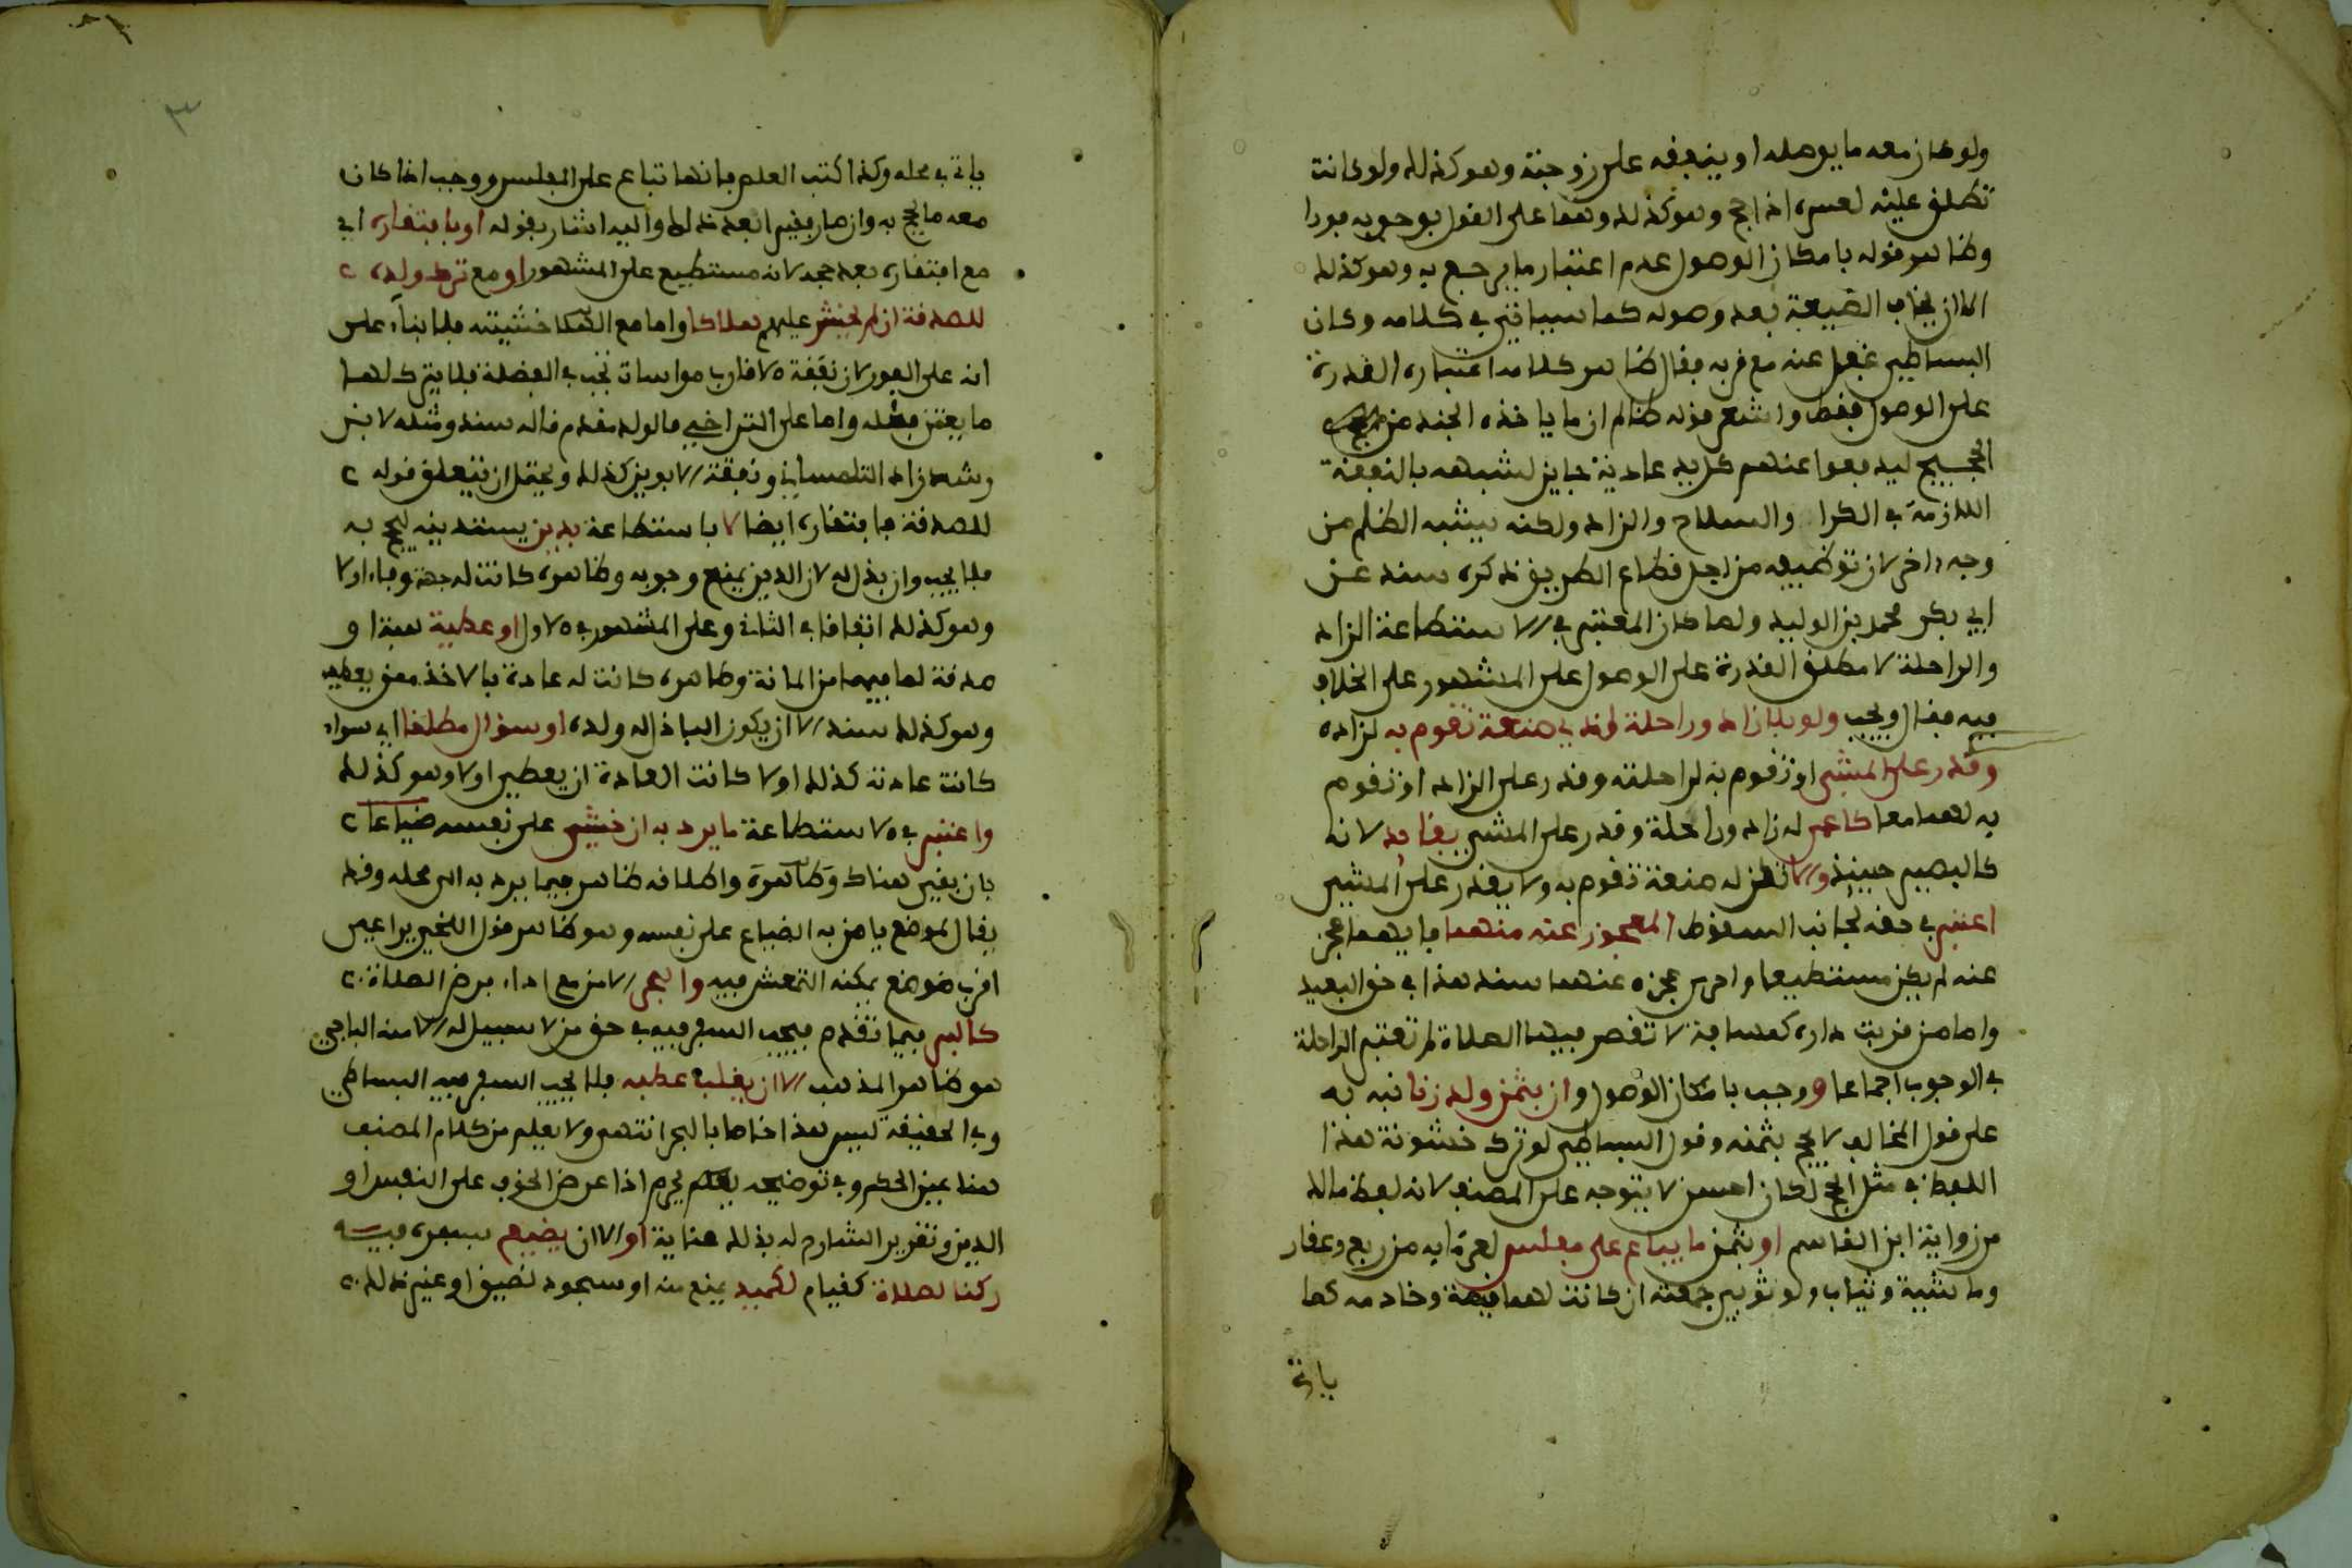 ولو كان معه ما يوصله او ينفقه على زوجته وهو كذلك ولو كانت
تطلق عليه لعسره اذا حج وهو كذلك وهذا على القول بوجوبه فورا
وظاهر قوله بامكان الوصول عدم اعتبار ما يرجع به وهو كذلك
الا ان يخاف الضيعة بعد وصوله كما سياتي في كلامه وكان
البساطي غفل عنه مع قربه فقال ظاهر كلامه اعتباره القدرة
على الوصول فقط واشعر قوله ظالم ان ما ياخذه الجند من
الحجيج ليدفعوا عنهم كل يد عادية جايز لشبهه بالنفقة
اللازمة في الكرا والسلاح والزاد ولكنه يشبه الظلم من
وجه اخر لان توظيفه من اجل قطاع الطريق ذكره سند عن
ابي بكر محمد بن الوليد ولما كان المعتبر في الاستطاعة الزاد
والراحلة لا مطلق القدرة على الوصول على المشهور على الخلاف
فيه فقال ويجب ولو بلا زاد وراحلة لذي صنعة تقوم به لزاده
وقدر على المشي او تقوم به لراحلته وقدر على الزاد او تقوم
به لهما معا كاعمى له زاد وراحلة وقدر على المشي بقايد لانه
كالبصير حينئذ والا تكن له صنعة تقوم به ولا يقدر على المشي
اعتبر في حقه لجانب السقوط المعجوز عنه منهما فايهما عجز
عنه لم يكن مستطيعا واحرى عجزه عنهما سند هذا في حق البعيد
واما من قربت داره كمسافة لا تقصر فيها الصلاة لم تعتبر الراحلة
في الوجوب اجماعا ووجب بامكان الوصول وان بثمن ولد زنا نبه به
على قول المخالف لا يحج بثمنه وقول البساطي لو ترك خشونة هذا
اللفظ في مثل الحج لكان احسن لا يتوجه على المصنف لانه لفظ مالك
من رواية ابن القاسم او بثمن ما يباع على مفلس لغرمايه من ربع وعقار
وماشية وثياب ولو ثوبي جمعته ان كانت لهما قيمة وخادمه كما
ياتي
٣
ياتي في محله وكذا كتب العلم فانها تباع على المفلس ووجب اذا كان
معه ما يحج به وان صار فقيرا بعد ذلك واليه اشار بقوله او بافتقاره اي
مع افتقاره بعد حجه لانه مستطيع على المشهور او مع ترك ولده
للصدقة ان لم يخش عليهم هلاكا واما مع الهلاك خشيته فلا بناء على
انه على الفور لان نفقة الاقارب مواسات تجب في الفضلة فلا يترك لها
ما يعتن فعله واما على التراخي فالولد مقدم قاله سند ومثله لابن
رشد زاد التلمساني ونفقة الابوين كذلك ويحتمل ان يتعلق قوله
للصدقة بافتقاره ايضا لا باستطاعة بدين يستدينه ليحج به
فلا يجب وان بذل له لان الدين يمنع وجوبه وظاهره كانت له جهة وفاء او لا
وهو كذلك اتفاقا في الثاني وعلى المشهور في الاول او عطية هبة او
صدقة لما فيها من المانة وظاهره كانت له عادة بالاخذ ممن يعطيه
وهو كذلك سند الا ان يكون الباذل له ولده او سؤال مطلقا اي سواء
كانت عادته كذلك او لا كانت العادة ان يعطى او لا وهو كذلك
واعتبر في الاستطاعة ما يرد به ان خشي على نفسه ضياعا
بان بقي هناك وظاهره واطلاقه ظاهر فيما يرد به الى محله وقد
يقال لموضع يامن به الضياع على نفسه وهو ظاهر قول اللخمي يراعى
اقرب موضع يمكنه التمعش فيه والبحر الامن مع اداء فرض الصلاة
كالبر فيما تقدم فيجب السفر فيه في حق من لا سبيل له الا منه الباجي
هو ظاهر المذهب الا ان يغلب عطبه فلا يجب السفر فيه البساطي
وفي الحقيقة ليس هذا خاصا بالبحر انتهى ولا يعلم من كلام المصنف
هنا عين الحكم وفي توضيحه يحرم اذا عرض الخوف على النفس او
الدين وتقرير الشارح له بذلك هنا ية او الا ان يضيع بسفره فيه
ركنا لصلاة كقيام لكميد يمنع منه او سجود لضيق او غير ذلك